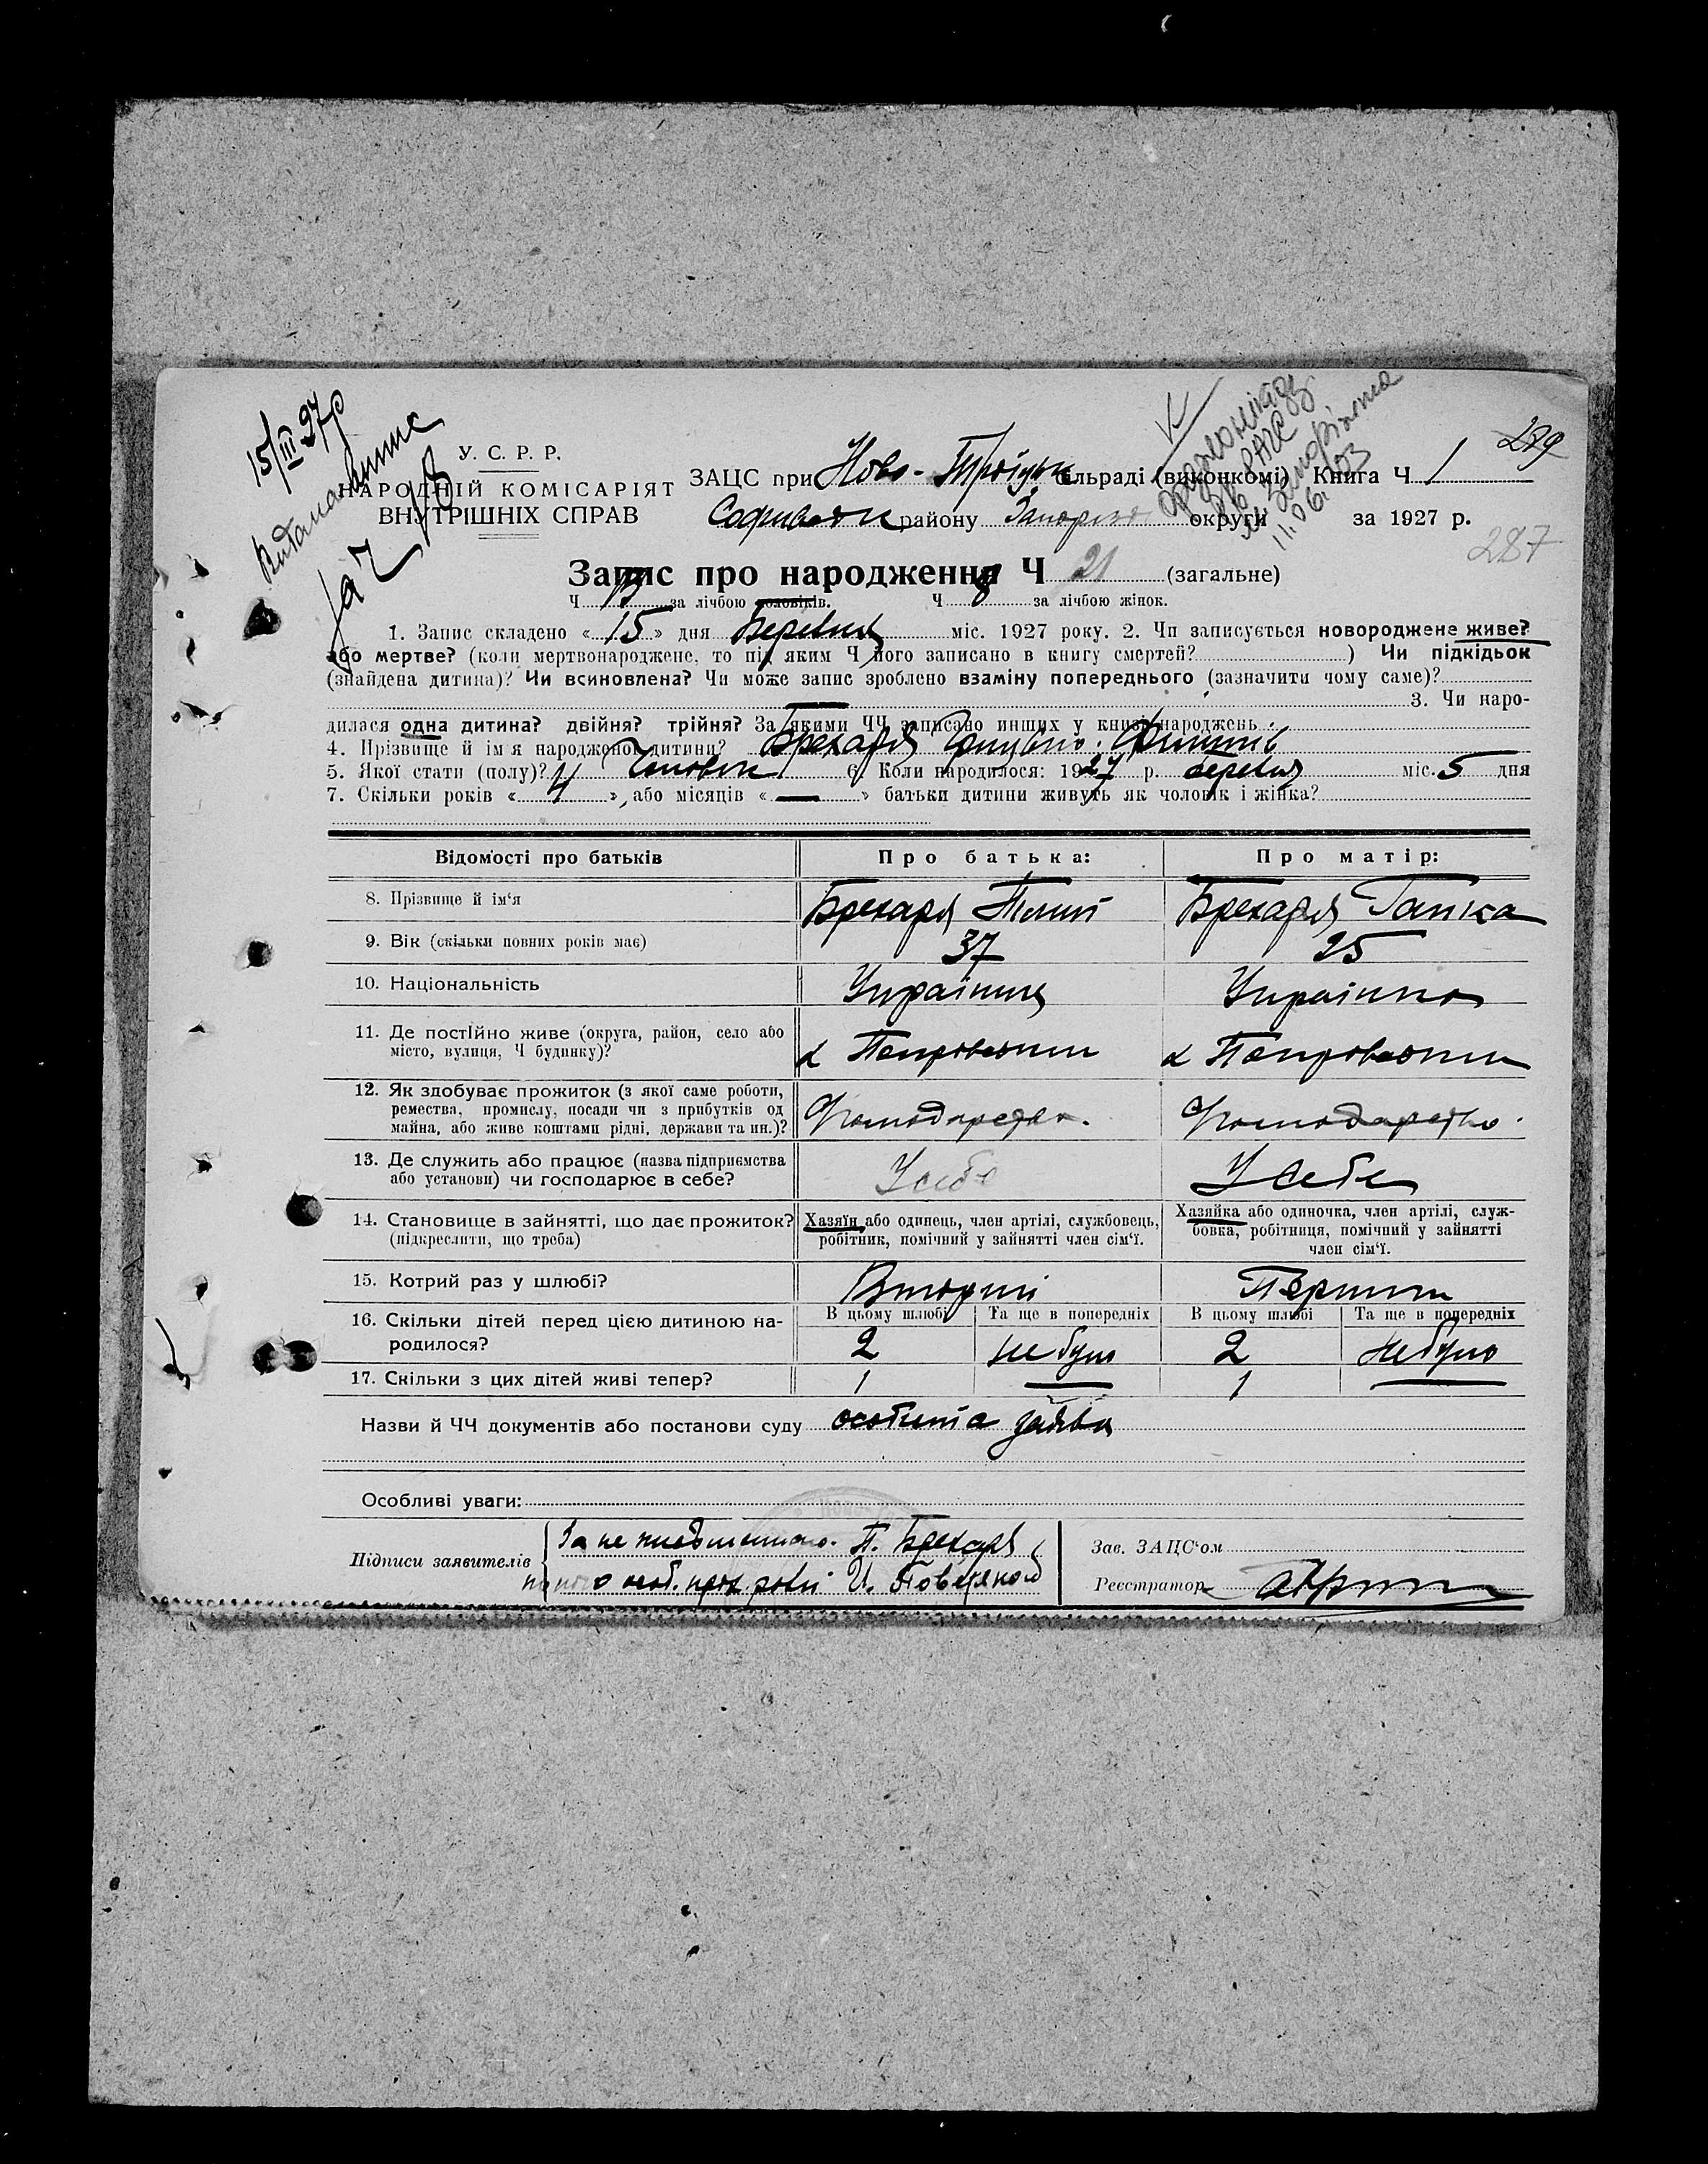 15/III 27р
У. С. Р. Р.
НАРОДНІЙ КОМІСАРІЯТ
ВНУТРІШНІХ СПРАВ
за № 18
279
ЗАЦС при Ново-Троїцьк сільраді (виконкомі) Книга Ч 1
Софиевськ району Запоріз округи за 1927 р.
11.06.03
287
Запис про народження Ч 21 (загальне)
Ч 13 за лічбою чоловіків. Ч 8 за лічбою жінок.
1. Запис складено «15» дня Березня міс. 1927 року. 2. Чи записується новороджене живе?
або мертве? (коли мертвонароджене, то під яким Ч його записано в книгу смертей? ) Чи підкідьок
(знайдена дитина)? Чи всиновлена? Чи може запис зроблено взаміну попереднього (зазначити чому саме)?
3. Чи наро-
дилася одна дитина? двійня? трійня? За якими ЧЧ записано инших у книзі народжень
4. Прізвище й ім'я народженої дитини? Брехаря
5. Якої стати (полу)? Ч Чоловік 6. Коли народилося: 1927 р. березня міс. 5 дня
7. Скільки років « 4 », або місяців « — » батьки дитини живуть як чоловік і жінка?
Відомості про батьків Про батька: Про матір:
8. Прізвище й ім'я Брехаря Пилип Брехаря Гапка
9. Вік (скільки повних років має) 37 25
10. Національність Українець Українка
11. Де постійно живе (округа, район, село або
місто, вулиця, Ч будинку)? х Петровський х Петровський
12. Як здобуває прожиток (з якої саме роботи,
ремества, промислу, посади чи з прибутків од
майна, або живе коштами рідні, держави та ин.)? Господарство. Господарство.
13. Де служить або працює (назва підприємства
або установи) чи господарює в себе? У себе У себе
14. Становище в зайнятті, що дає прожиток?
(підкреслити, що треба)
Хазяїн або одинець, член артілі, службовець,
робітник, помічний у зайнятті член сім'ї.
Хазяйка або одиночка, член артілі, служ-
бовка, робітниця, помічний у зайнятті
член сім'ї.
15. Котрий раз у шлюбі? Вторий Перший
В цьому шлюбі Та ще в попередніх В цьому шлюбі Та ще в попередніх
16. Скільки дітей перед цією дитиною на-
родилося? 2 не було 2 не було
17. Скільки з цих дітей живі тепер? 1 — 1 —
Назви й ЧЧ документів або постанови суду особиста заява
Особливі уваги:
Підписи заявителів
За не письменного П. Брехаря
Зав. ЗАЦС'ом
Реєстратор